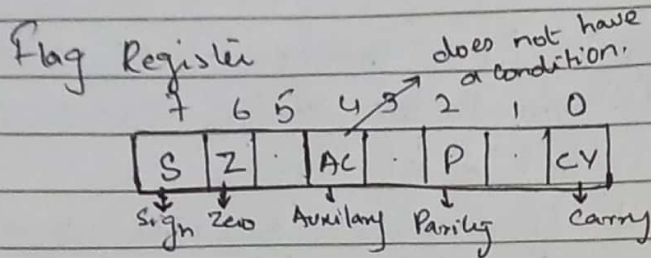 Flag Register
does not have
a condition.
7 6 5 4 3 2 1 0
S Z . AC . P . CY
Sign Zero Auxilary Parity Carry